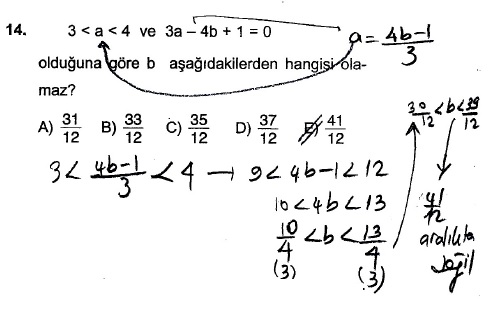 14. 3 < a < 4 ve 3a – 4b + 1 = 0
a = 4b-1/3
olduğuna göre b aşağıdakilerden hangisi ola-
maz?
A) 31/12 B) 33/12 C) 35/12 D) 37/12 E) 41/12
3 < 4b-1/3 < 4 → 9 < 4b-1 < 12
10 < 4b < 13
10/4 < b < 13/4
(3) (3)
30/12 < b < 39/12
41/12
aralıkta
değil